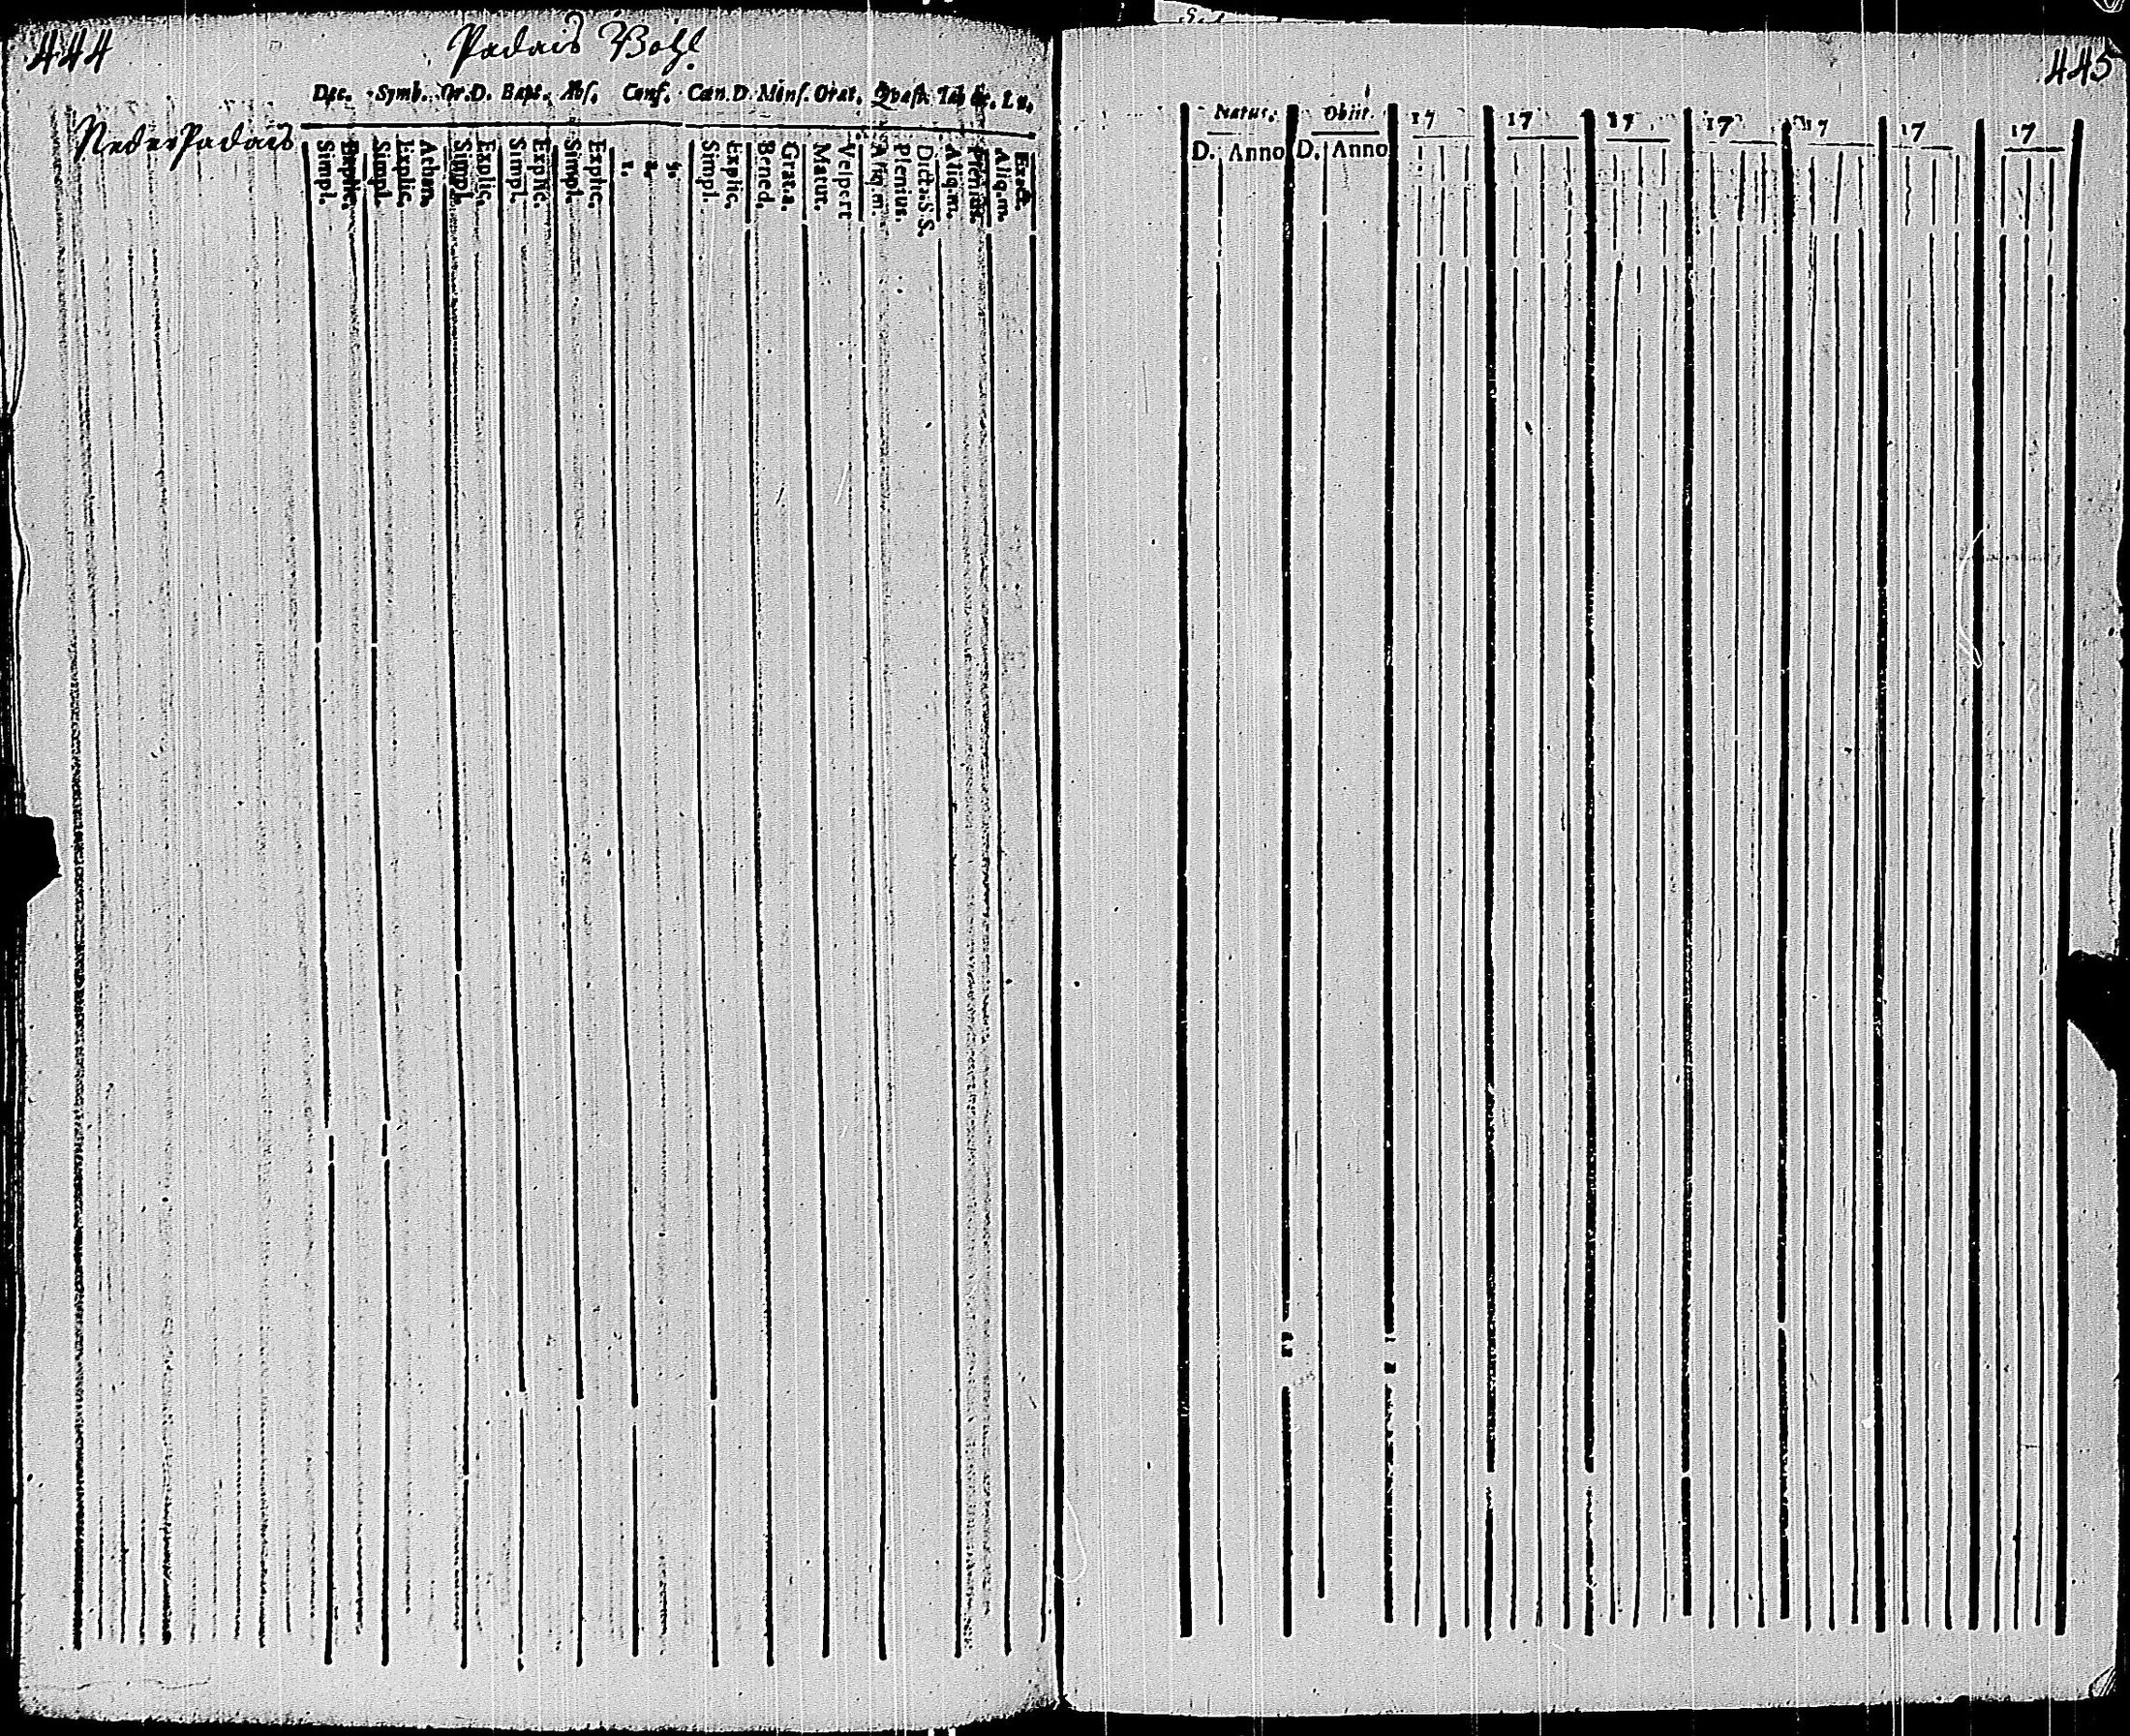 444
Padais Bohl.
Dec. Symb. Or.D. Bapt. Abs. Conf. Cœn.D. Mens. Orat. Qvæst. Tab
Neder Padais
Simpl. Explic. Simpl. Explic. Athan. Simpl. Explic. Simpl. Explic. Simpl. Explic. 1. 2. 3. Simpl. Explic. Bened. Grat.a. Matut. Vespert Aliq.m. Plenius. Dicta.S.S. Aliq.m. Plenius. Aliq.m. Exact.
445
Natus. Obiit. 17 17 17 17 17 17 17
D. Anno D. Anno